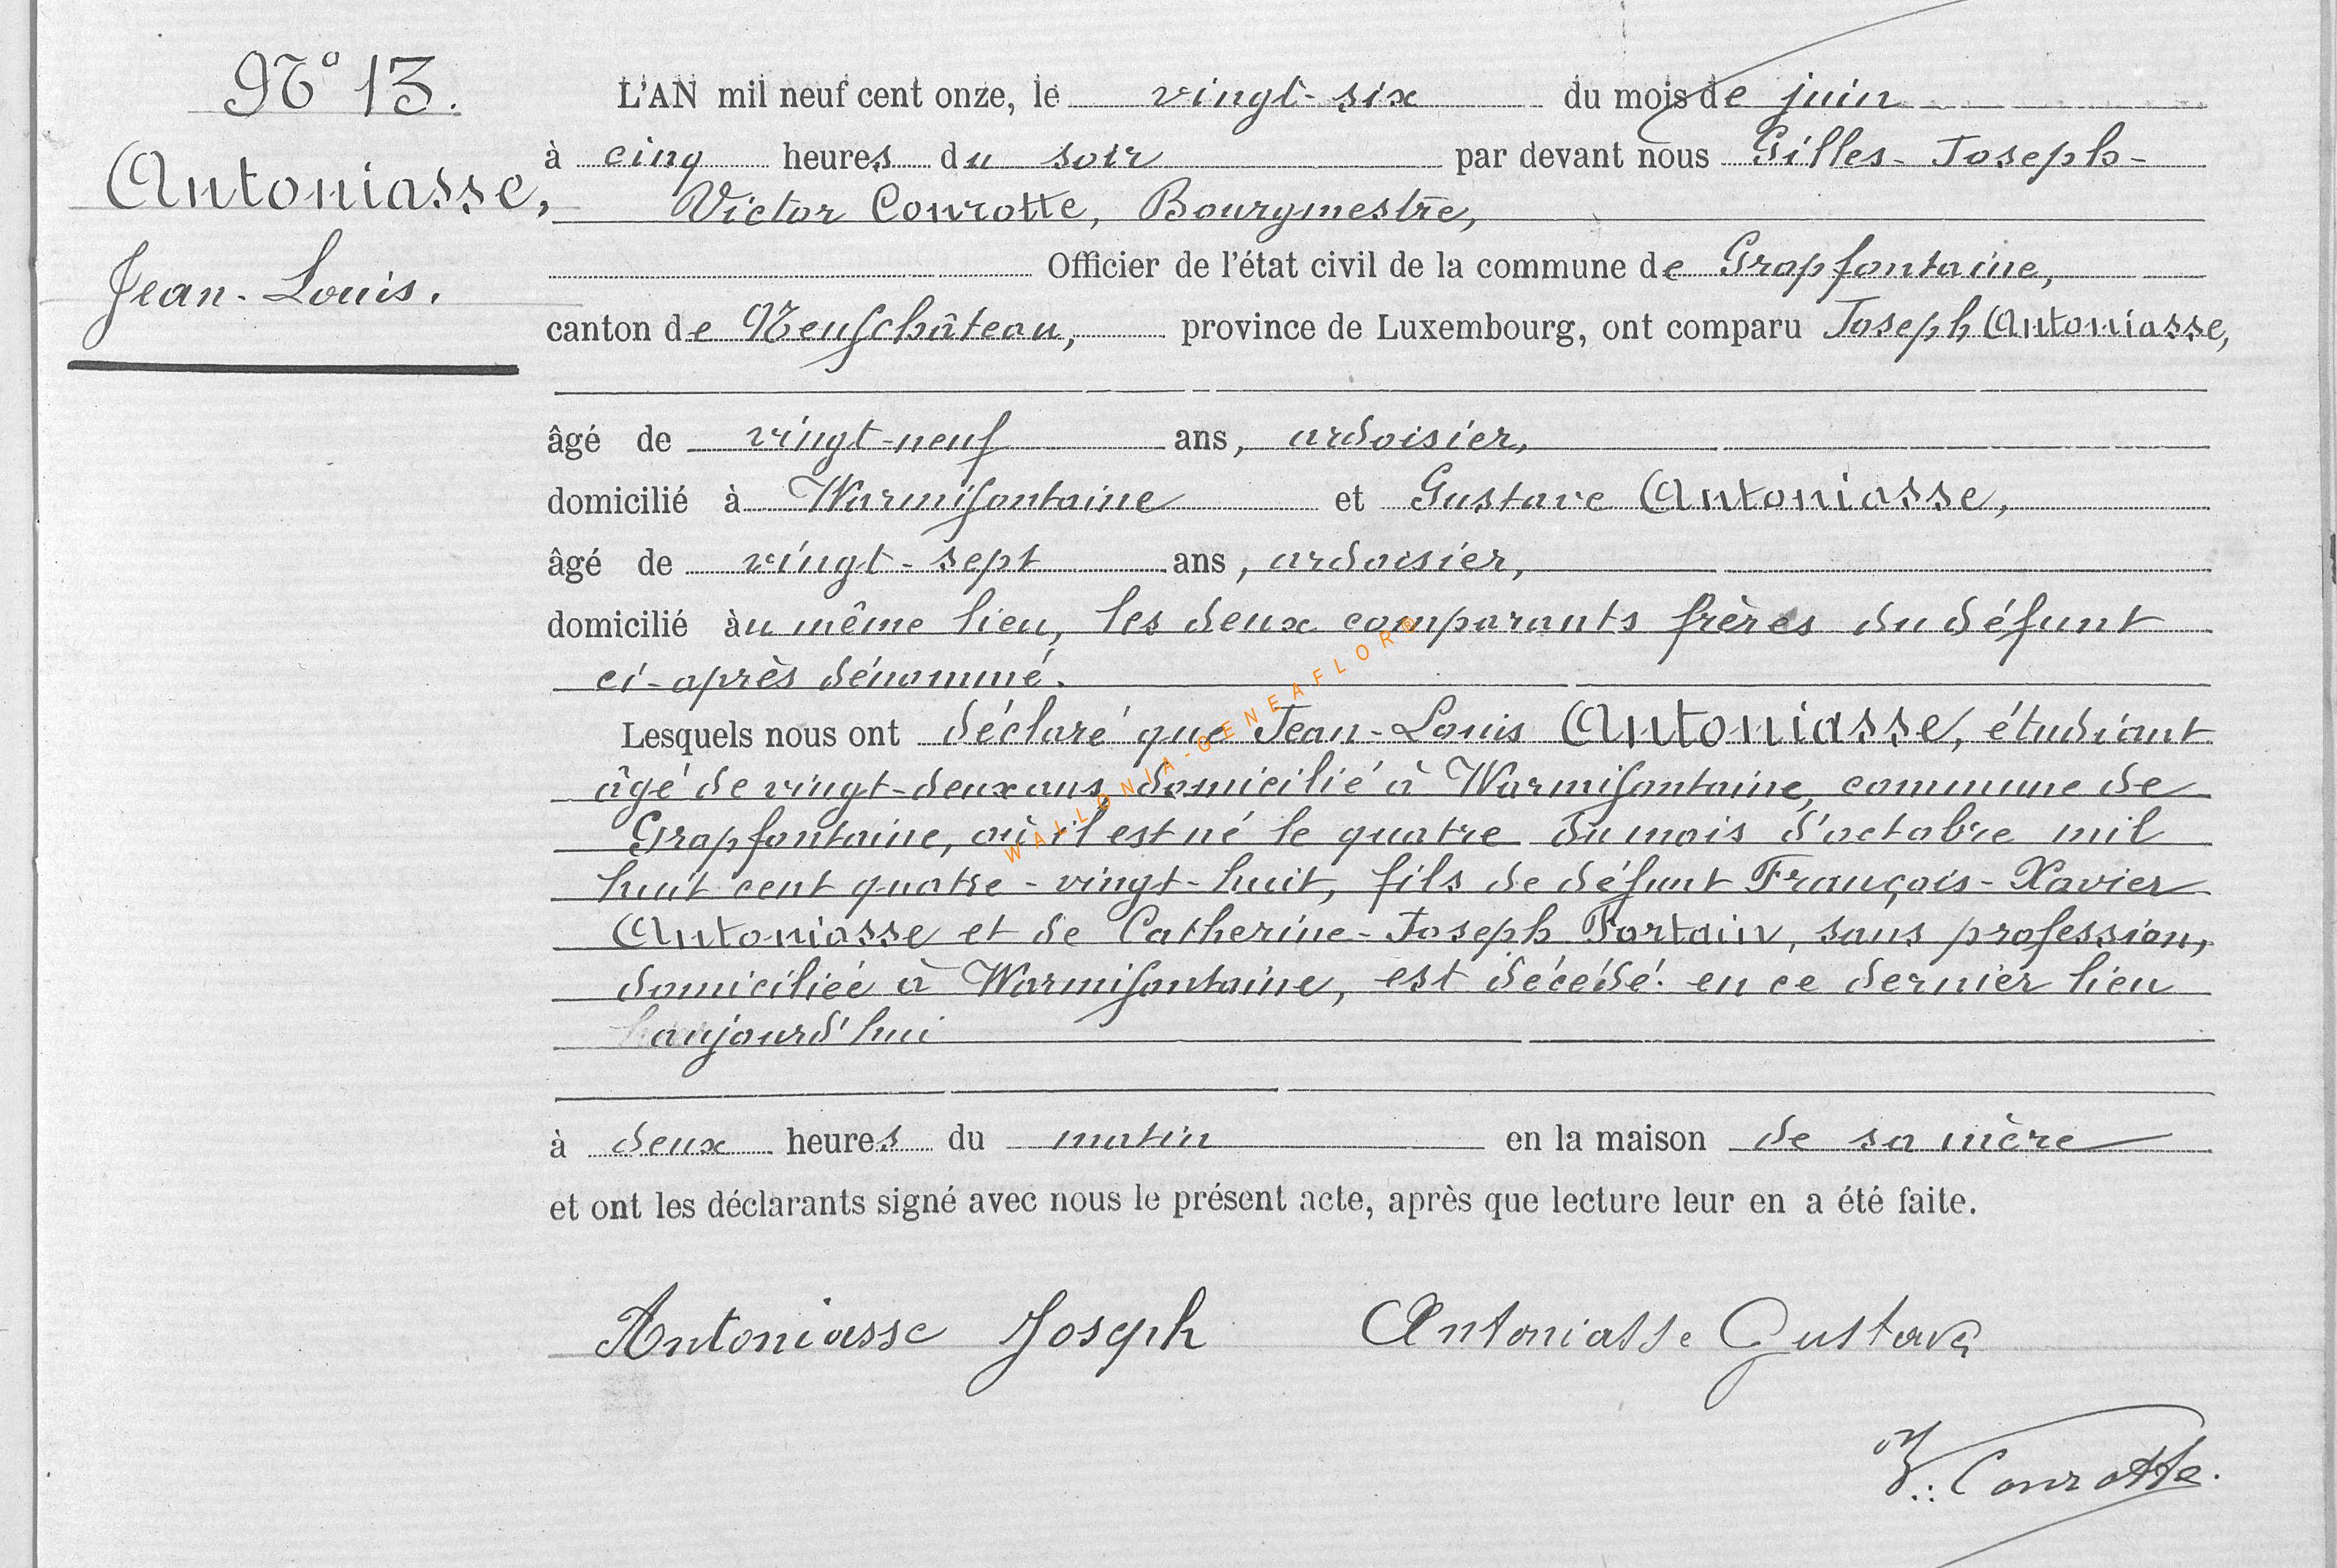 N° 13.
Antoniasse,
Jean-Louis.
L'AN mil neuf cent onze, le vingt-six du mois de juin
à cinq heures du soir par devant nous Gilles-Joseph-
Victor Conrotte, Bourgmestre,
Officier de l'état civil de la commune de Grapfontaine,
canton de Neufchâteau, province de Luxembourg, ont comparu Joseph Antoniasse,
âgé de vingt-neuf ans, ardoisier,
domicilié à Warmifontaine et Gustave Antoniasse,
âgé de vingt-sept ans, ardoisier,
domicilié àu même lieu, les deux comparants frères du défunt
ci-après dénommé.
Lesquels nous ont déclaré que Jean-Louis Antoniasse, étudiant
âgé de vingt-deux ans, domicilié à Warmifontaine, commune de
Grapfontaine, où il est né le quatre du mois d'octobre mil
huit cent quatre-vingt-huit, fils de défunt François-Xavier
Antoniasse et de Catherine-Joseph Portain, sans profession,
domiciliée à Warmifontaine, est décédé en ce dernier lieu
aujourd'hui
à deux heures du matin en la maison de sa mère
et ont les déclarants signé avec nous le présent acte, après que lecture leur en a été faite.
Antoniasse Joseph Antoniasse Gustave
V. Conrotte.
WALLONIA-GENEAFLORE